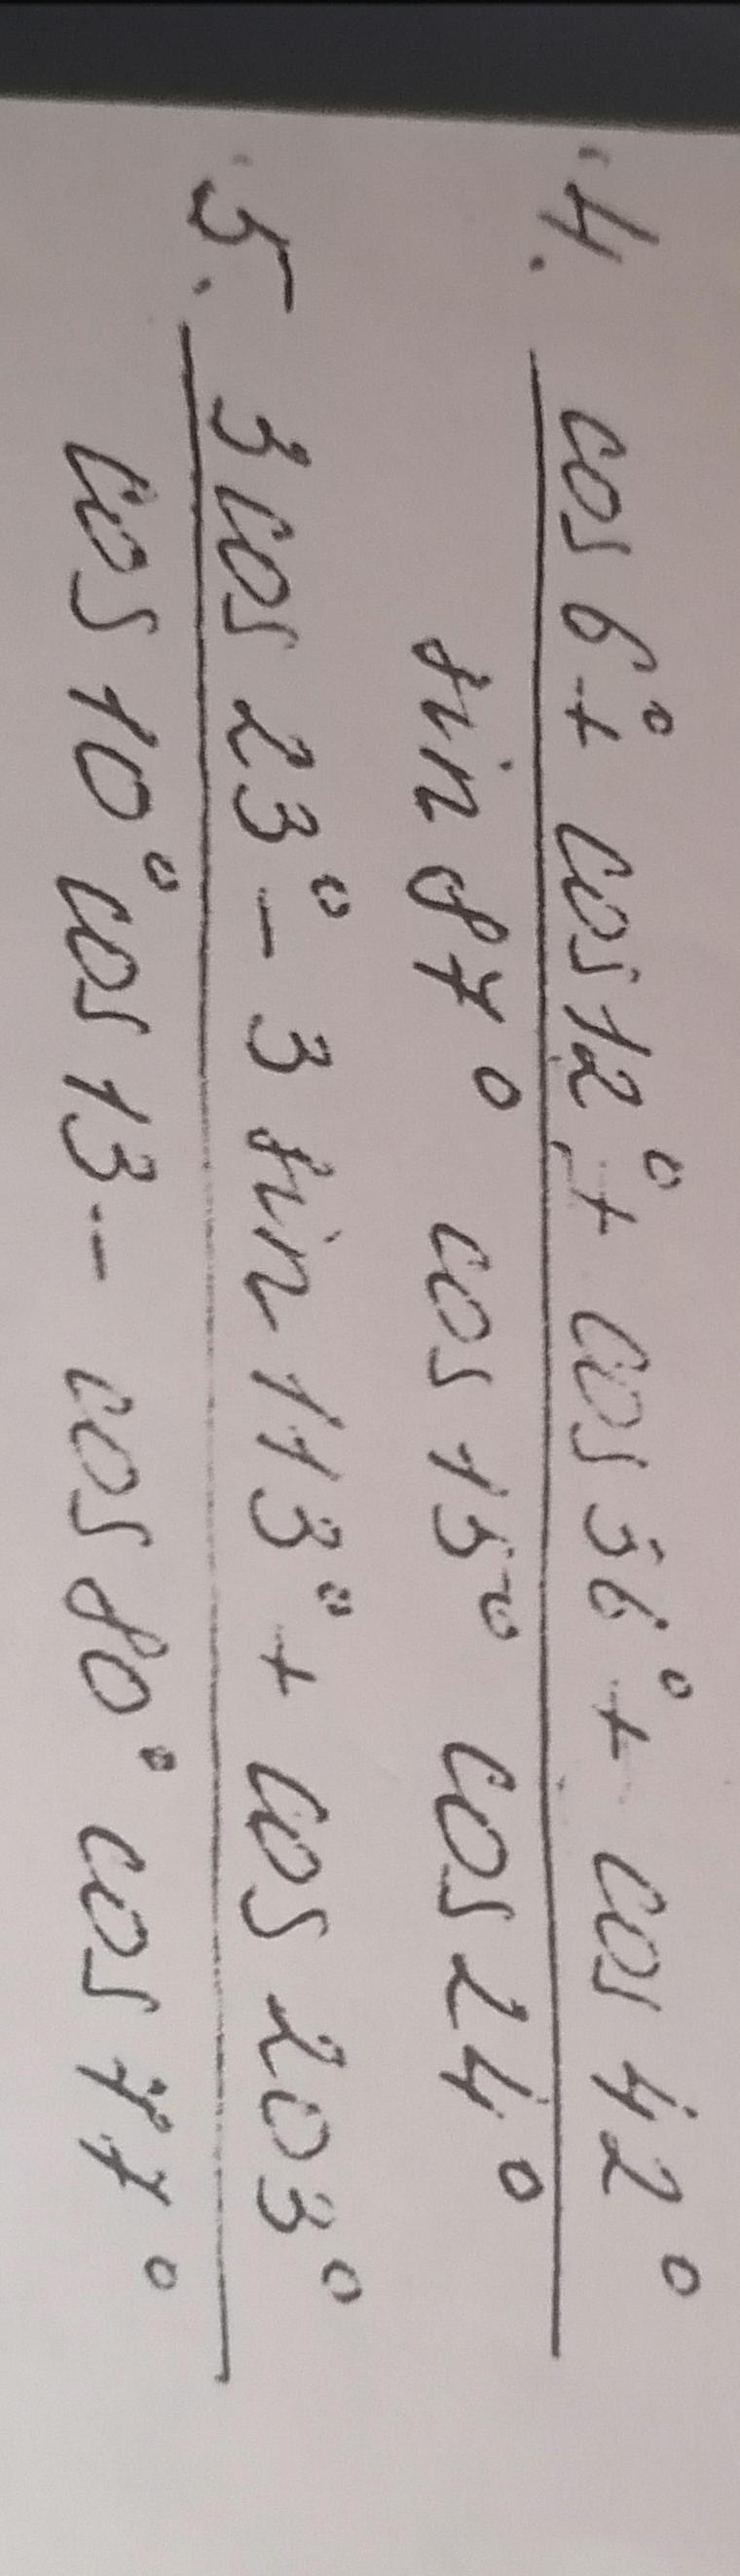 4. cos 6° + cos 12° + cos 36° + cos 42°
sin 87° cos 15° cos 24°
5. 3 cos 23° - 3 sin 113° + cos 203°
cos 10° cos 13 - cos 80° cos 77°